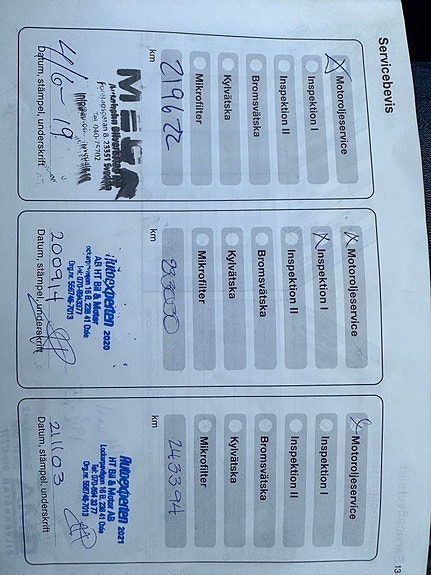 Servicebevis
X Motoroljeservice
Inspektion I
Inspektion II
Bromsvätska
Kylvätska
Mikrofilter
km
219622
MECA
23351 Svedala
4/6-19
Datum, stämpel, underskrift
X Motoroljeservice
X Inspektion I
Inspektion II
Bromsvätska
Kylvätska
Mikrofilter
km
Autoexperten 2020
AB HT Bil & Motor
16 B, 238 41 Oxie
200914
Datum, stämpel, underskrift
X Motoroljeservice
Inspektion I
Inspektion II
Bromsvätska
Kylvätska
Mikrofilter
km
243394
Autoexperten 2021
HT Bil & Motor AB
16 B, 238 41 Oxie
211103
Datum, stämpel, underskrift
13